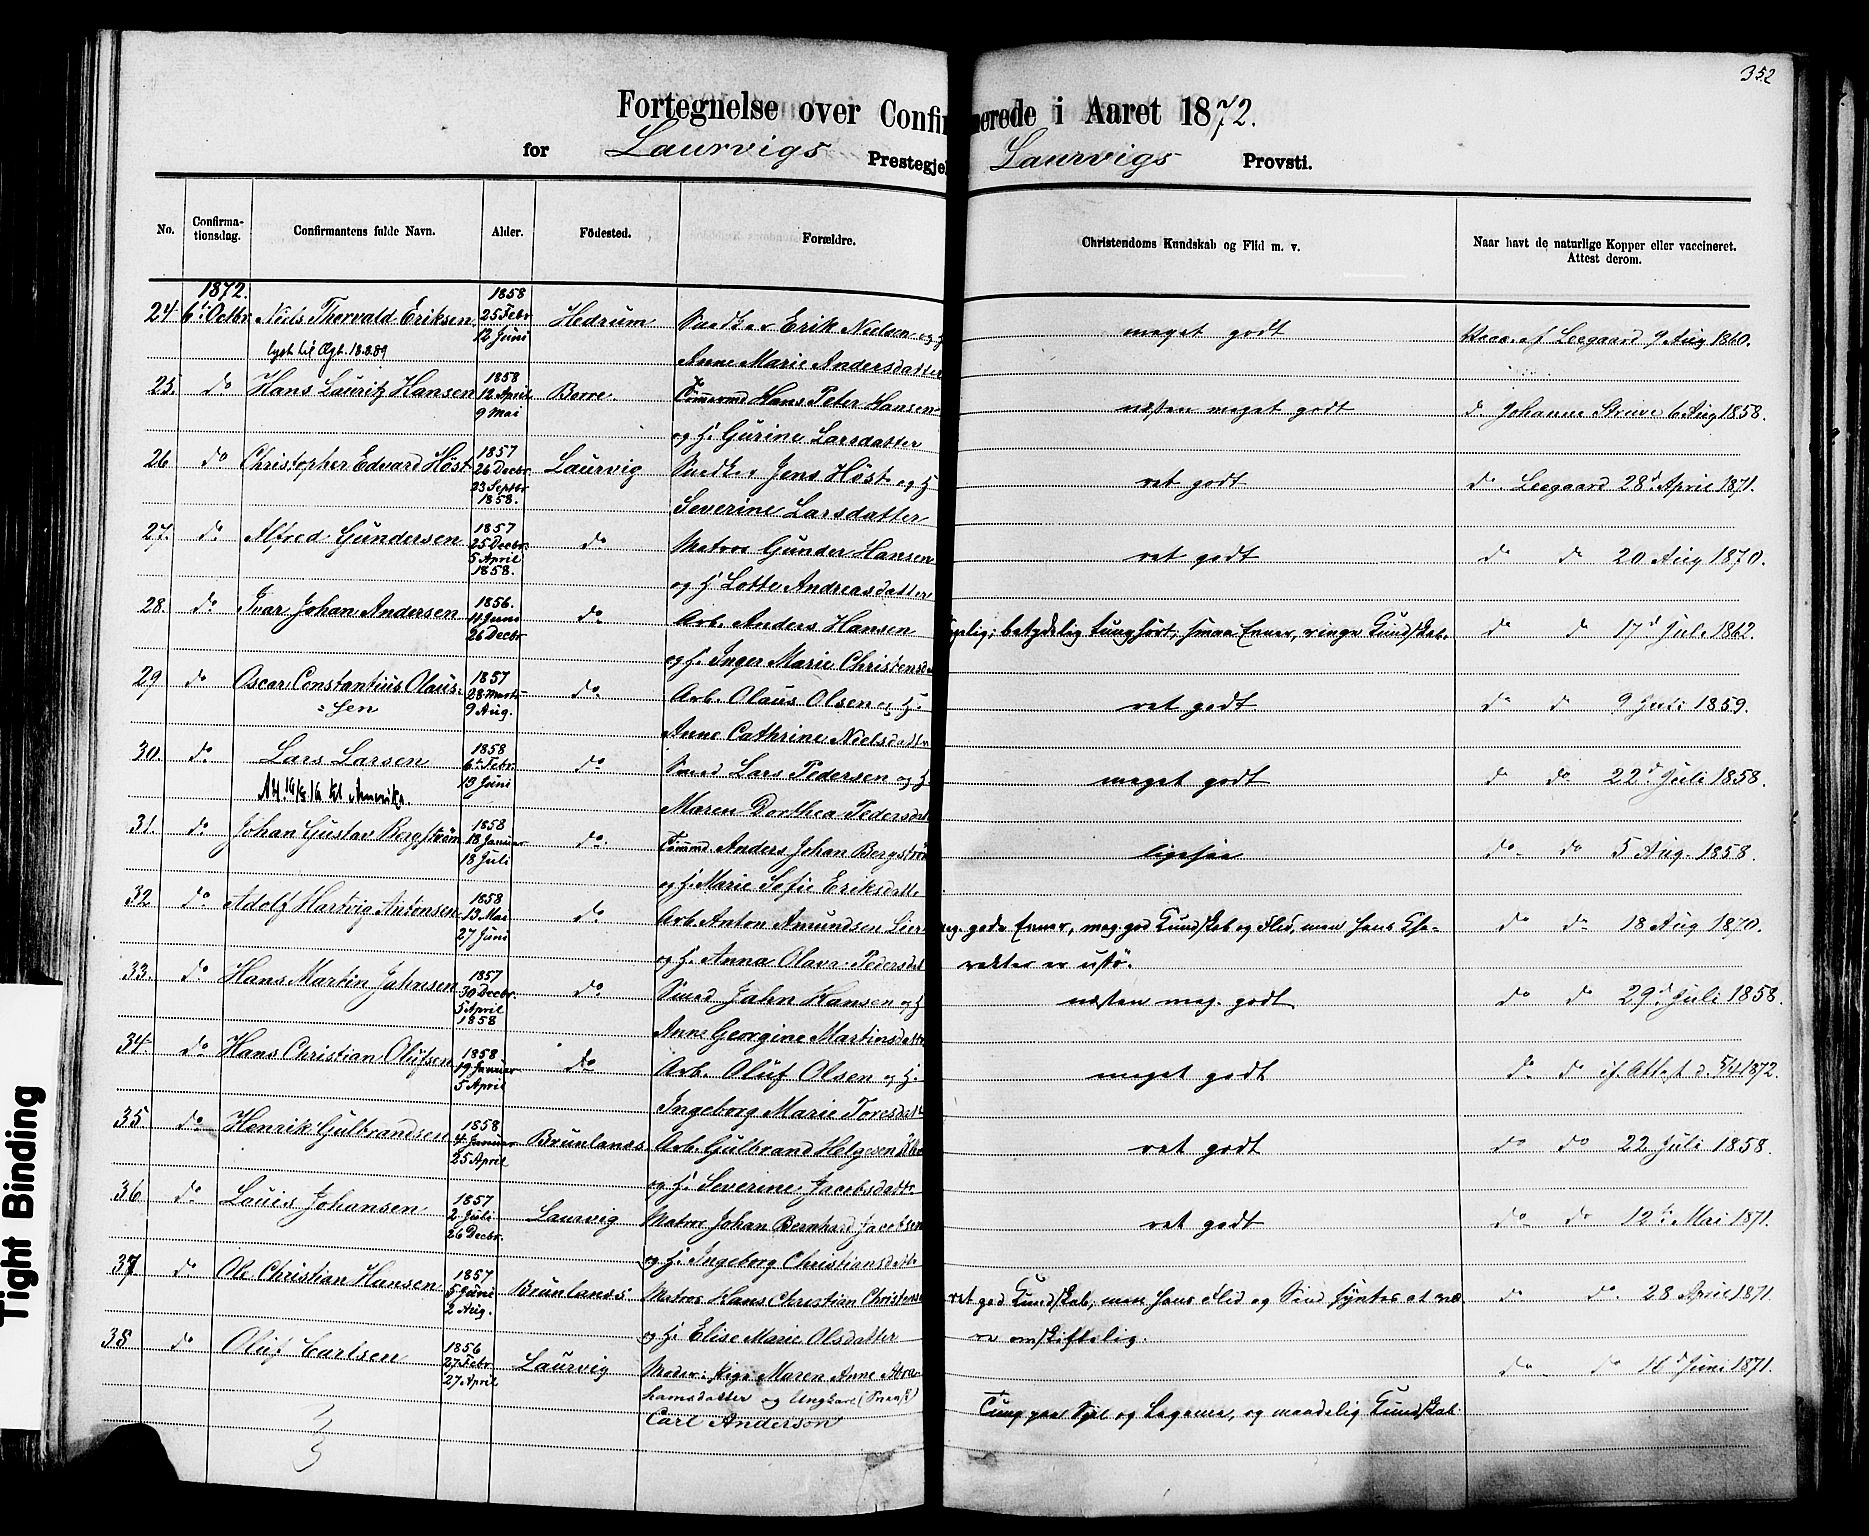 352
Fortegnelse over Confirmerede i Aaret 1872.
for Laurvigs Prestegjel Laurvigs Provsti.
No. Confirma-tionsdag. Confirmantens fulde Navn. Alder. Födested. Forældre. Christendoms Kundskab og Flid m. v. Naar havt de naturlige Kopper eller vaccineret. Attest derom.
1872. 1858
24 6te Octbr Niels Thorvald Eriksen 25 Febr 12 Juni Hedrum Snedker Erik Nielsen og H. meget godt Vacc. af Leegaard 9 Aug 1860.
lyst til Ægt. 18.8.89 Anne Marie Andersdatter
25. do Hans Lauritz Hansen 1858 12 April 9 Mai Borre. Tömmermd Hans Peter Hansen næsten meget godt do Johanne 6 Aug 1858.
og H. Gurine Larsdatter
26 do Christopher Edvard Höst 1857 26 Decbr 23 Septbr 1858. Laurvig Snedker Jens Höst og H. ret godt do Leegaard 28d April 1871.
Severine Larsdatter
27. do Alfred Gundersen 1857 25 Decbr. 5 April 1858. do Matros Gunder Hansen ret godt do do 20 Aug 1870.
og H. Lotte Andreasdatter
28. do Ivar Johan Andersen 1856. 4 Juni 26 Decbr do Arb. Anders Hansen betydelig tunghört, smaa Evner, ringe Kundskab. do do 17d Juli 1862.
og H. Inger Marie Christensd
29 do Oscar Constantius Olaus- 1857 28 Marts 9 Aug. do Arb. Olaus Olsen og H. ret godt do do 9 Juli 1859.
sen Anne Cathrine Nielsdatter
30. do Lars Larsen 1858 6te Febr. 13 Juni do Smed Lars Pedersen og H. meget godt do do 22d Juli 1858.
til Amerika. Maren Dorthea Pedersdat
31. do Johan Gustav Bergström 1858 18 Januar 18 Juli do. Tömmd Anders Johan Bergströ ligesaa do do 5 Aug. 1858.
og H. Marie Sofie Eriksdatte
32 do Adolf Hartvig Antonsen 1858 13 Mai 27 Juni do Arb. Anton Amundsen Lier gode Evner, meg. god Kundskab og Flid, men hans Cha- do do 18 Aug 1870.
og H. Anna Olava Pedersdat rakter er ustö.
33. do Hans Martin Jahnsen 1857 30 Decbr. 5 April 1858 do Smed Jahn Hansen og H næsten meg. godt do do 29d Juli 1858.
Anne Georgine Martinsdatte
34. do Hans Christian Olufsen 1858 19 Januar 5 April do Arb. Oluf Olsen og H. meget godt do do if. Attest d. 5/4 1872.
Ingeborg Marie Toresdatt
35 do Henrik Gulbrandsen 1858 4 Januar 25 April Brunlanæs Arb. Gulbrand Helgesen ret godt do do 22 Juli 1858.
og H. Severine Jacobsdatte
36 do Louis Johansen 1857 2 Juli 26 Decbr. Laurvig Matros Johan Bernhard Jacobsen ret godt do do 12te Mai 1871.
og H. Ingeborg Christiansdatte
37 do Ole Christian Hansen 1857 5 Juni 2 Aug. Brunlanæs Matros Hans Christian Christens ret god Kundskab, men hans Flid og Sind syntes at væ- do do. 28 April 1871
og H. Elise Marie Olsdatter re omskiftelig.
38 do Oluf Carlsen 1856 27 Febr 27 April Laurvig Moder: Pige Maren Anne Abra- do do 16d Juni 1871.
hamsdatter og Ungkarl (Svensk)
Carl Anderson Tung paa Sjel og Legeme, og maadelig Kundskab.
Tight Binding